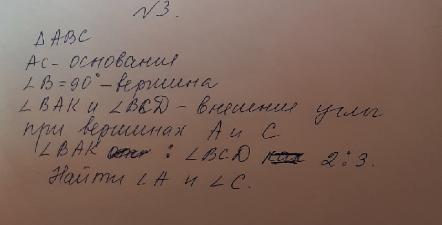 №3.
ΔABC
AC - основание
∠B = 90° - вершина
∠BAK и ∠BCD - внешние углы
при вершинах A и C.
∠BAK : ∠BCD 2:3.
Найти ∠A и ∠C.